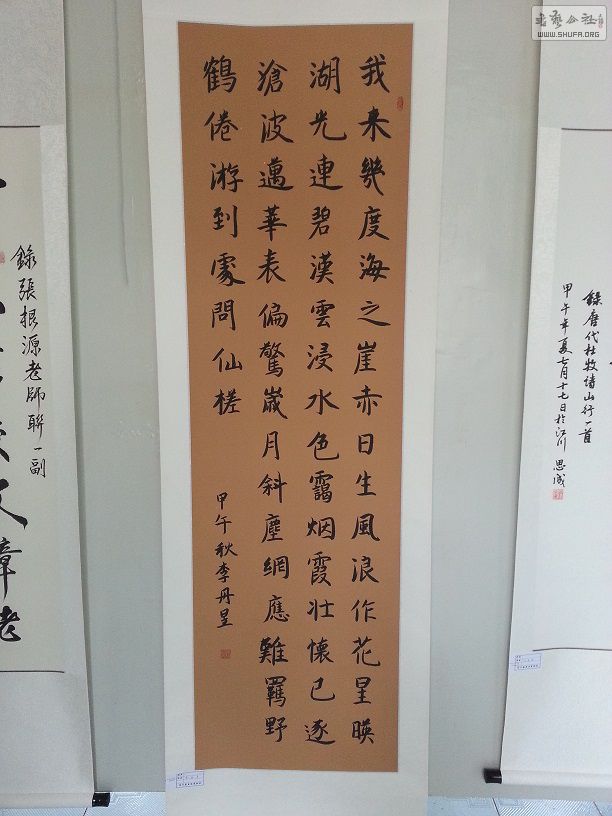 書藝公社
WWW.SHUFA.ORG
錄唐代杜牧詩山行一首
甲午年夏七月十七日於江川 思成
我来幾度海之崖赤日生風浪作花星暎
湖光連碧漢雲浸水色靄烟霞壮懷已逐
滄波邁華表偏驚嵗月斜塵網應難羈野
鶴倦游到處問仙槎
甲午秋李丹昱
錄張根源老師聯一副
文章老